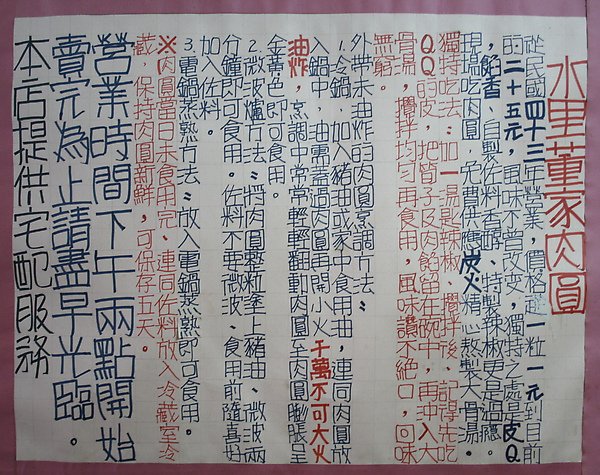 水里董家肉圓
從民國四十三年營業，價格從一粒一元到目前
的二十五元，風味不曾改变，獨特之處是皮Q
，餡香、自製佐料香醇、特製辣椒更是過癮。
現場吃肉圓，免費供應皮火精心熬製大骨湯。
獨特吃法：加一湯匙辣椒、攪拌後、記得先吃
QQ的皮，把筍子及肉餡留在碗中，再沖入大
骨湯，攪拌均勻再食用，風味讚不絕口，回味
無窮。
外帶未油炸的肉圓烹調方法：
1.冷鍋、加入豬油或家中食用油，連同肉圓放
入鍋中，油需蓋過肉圓再開小火千萬不可大火
油炸，烹調中常常輕輕翻動肉圓至肉圓膨脹呈
金黃色即可食用。
2.微波爐方法：將肉圓整粒塗上豬油、微波兩
分鐘即可食用。佐料不要微波、食用前隨喜好
加入佐料。
3.電鍋蒸熟方法：放入電鍋蒸熟即可食用。
※肉圓當日未食用完、連同佐料放入冷藏室冷
藏，保持肉圓新鮮，可保存五天。
營業時間下午兩點開始
賣完為止請盡早光臨。
本店提供宅配服務